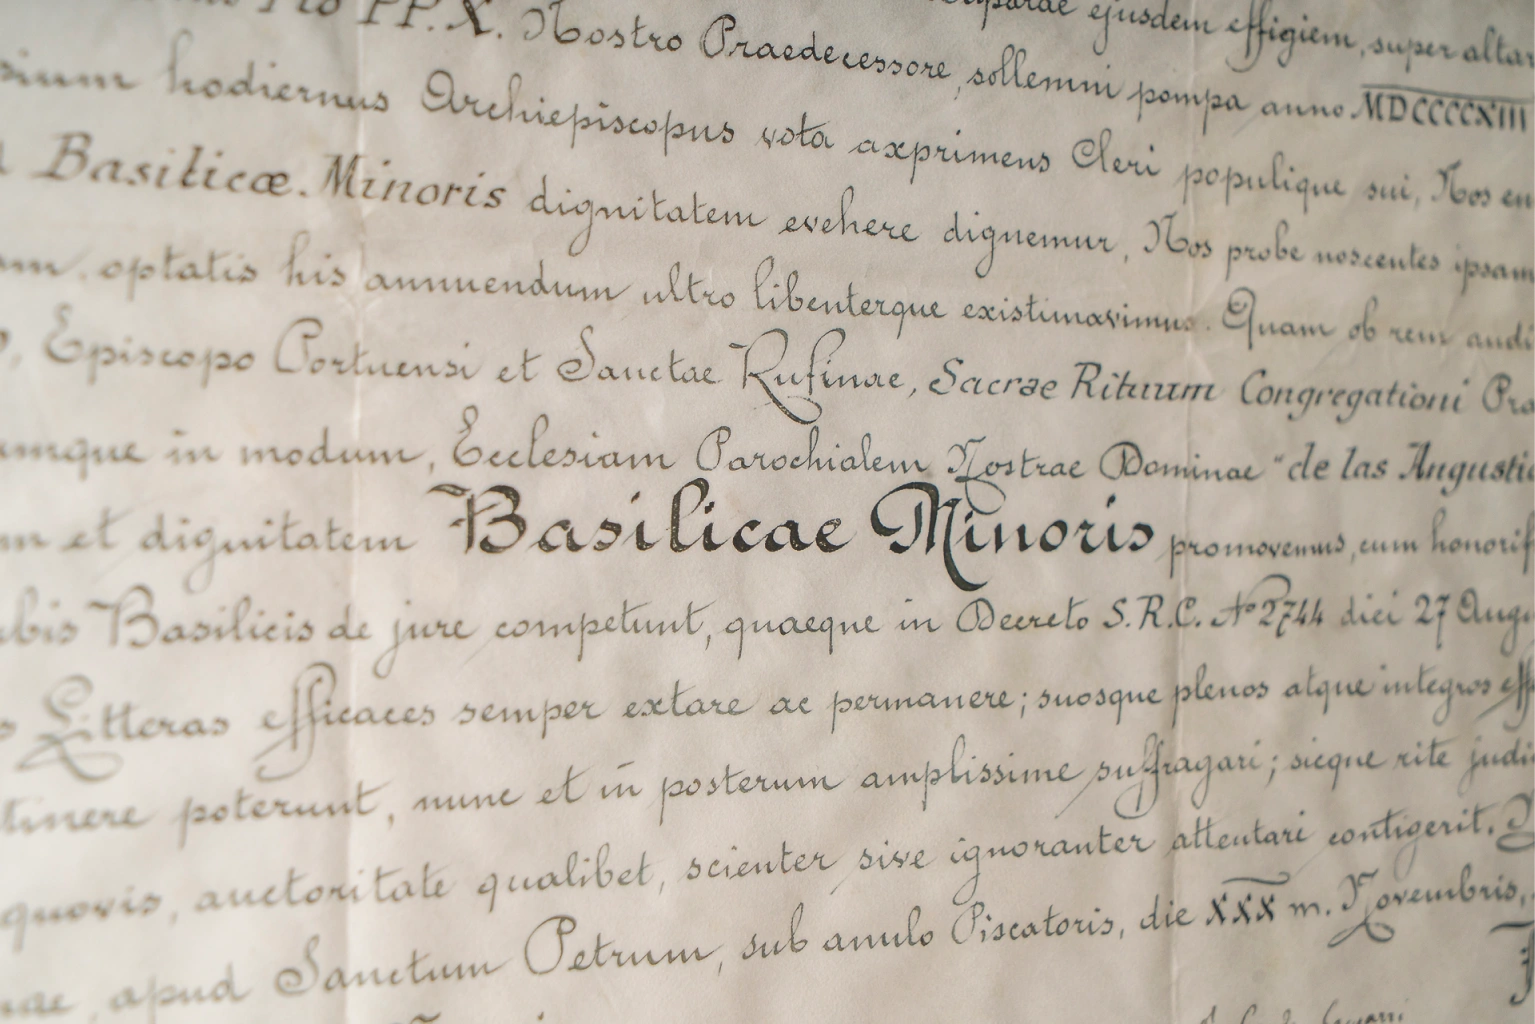 PP. X. Nostro Praedecessore, sollemni pompa anno MDCCCCXIII
ejusdem effigiem, super altar
hodiernus Archiepiscopus vota axprimens Cleri populique sui, Nos en
Basilicæ Minoris dignitatem evehere dignemur, Nos probe noscentes ipsam
optatis his annuendum ultro libenterque existimavimus. Quam ob rem audi
Episcopo Portuensi et Sanctae Rufinae, Sacrae Rituum Congregationi Pra
umque in modum, Ecclesiam Parochialem Nostrae Dominae "de las Angustia
m et dignitatem Basilicae Minoris promovemus, cum honorif
bis Basilicis de jure competunt, quaeque in Decreto S.R.C. Nº 2744 diei 27 Augu
s Litteras efficaces semper extare ac permanere; suosque plenos atque integros eff
tinere poterunt, nunc et in posterum amplissime suffragari; sicque rite judi
quovis, auctoritate qualibet, scienter sive ignoranter attentari contigerit.
nae, apud Sanctum Petrum, sub anulo Piscatoris, die XXX m. Novembris,